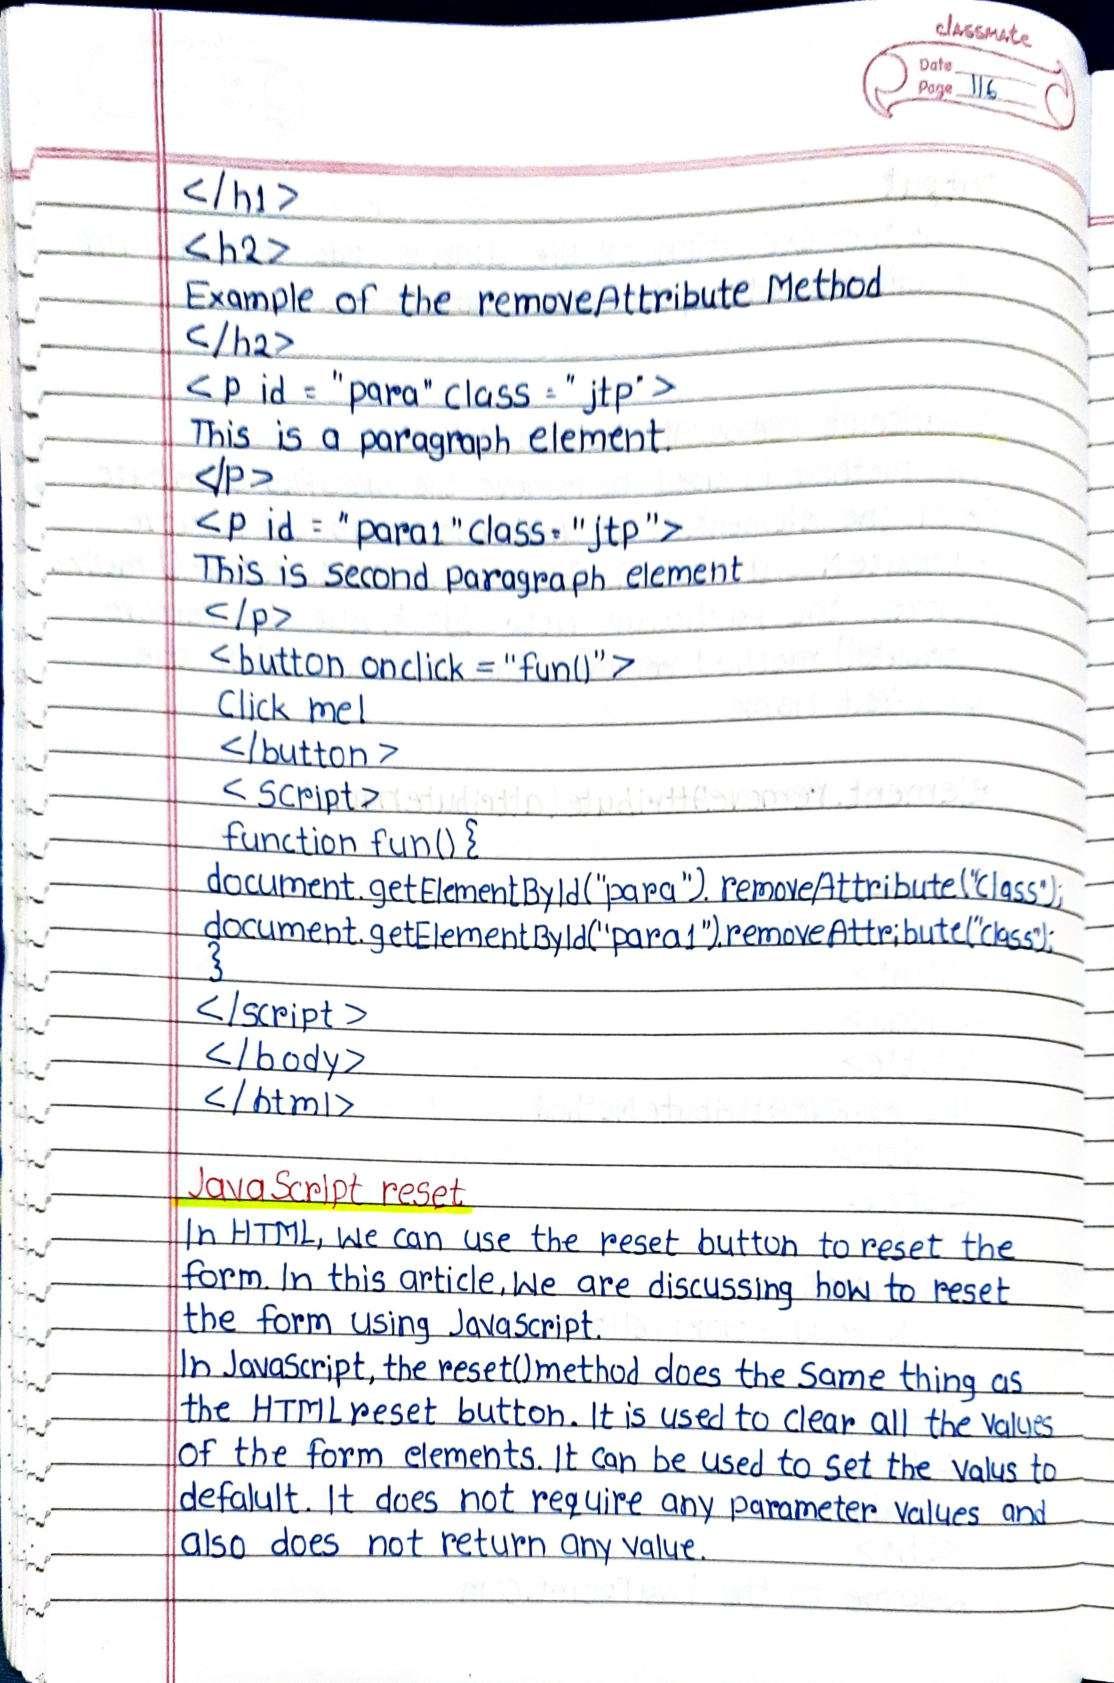 classmate
Date
Page 116
</h1>
<h2>
Example of the removeAttribute Method
</h2>
<p id = "para" class = "jtp">
This is a paragraph element.
</p>
<p id = "para1" class = "jtp">
This is second paragraph element
</p>
<button onclick = "fun()">
Click me!
</button>
<script>
function fun() {
document.getElementById("para").removeAttribute("class");
document.getElementById("para1").removeAttribute("class");
}
</script>
</body>
</html>
JavaScript reset
In HTML, we can use the reset button to reset the
form. In this article, we are discussing how to reset
the form using Javascript.
In JavaScript, the reset() method does the same thing as
the HTML reset button. It is used to clear all the values
of the form elements. It can be used to set the valus to
defalult. It does not require any parameter values and
also does not return any value.